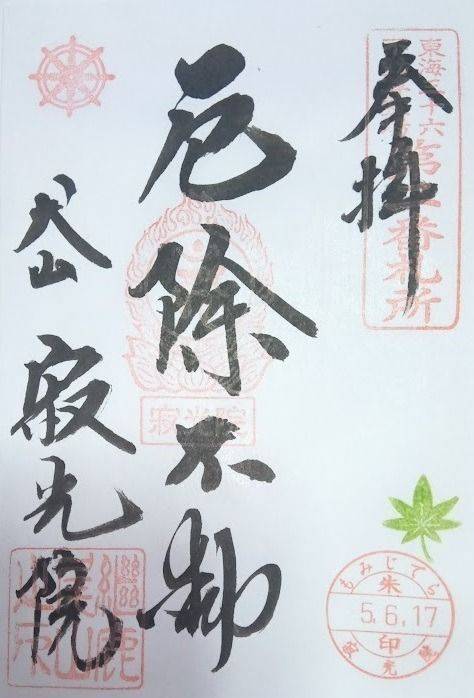 奉拝
東海三十六
第一番札所
厄除不動
寂光院
犬山 寂光院
もみじでら
朱
5.6.17
印
寂光院
継鹿